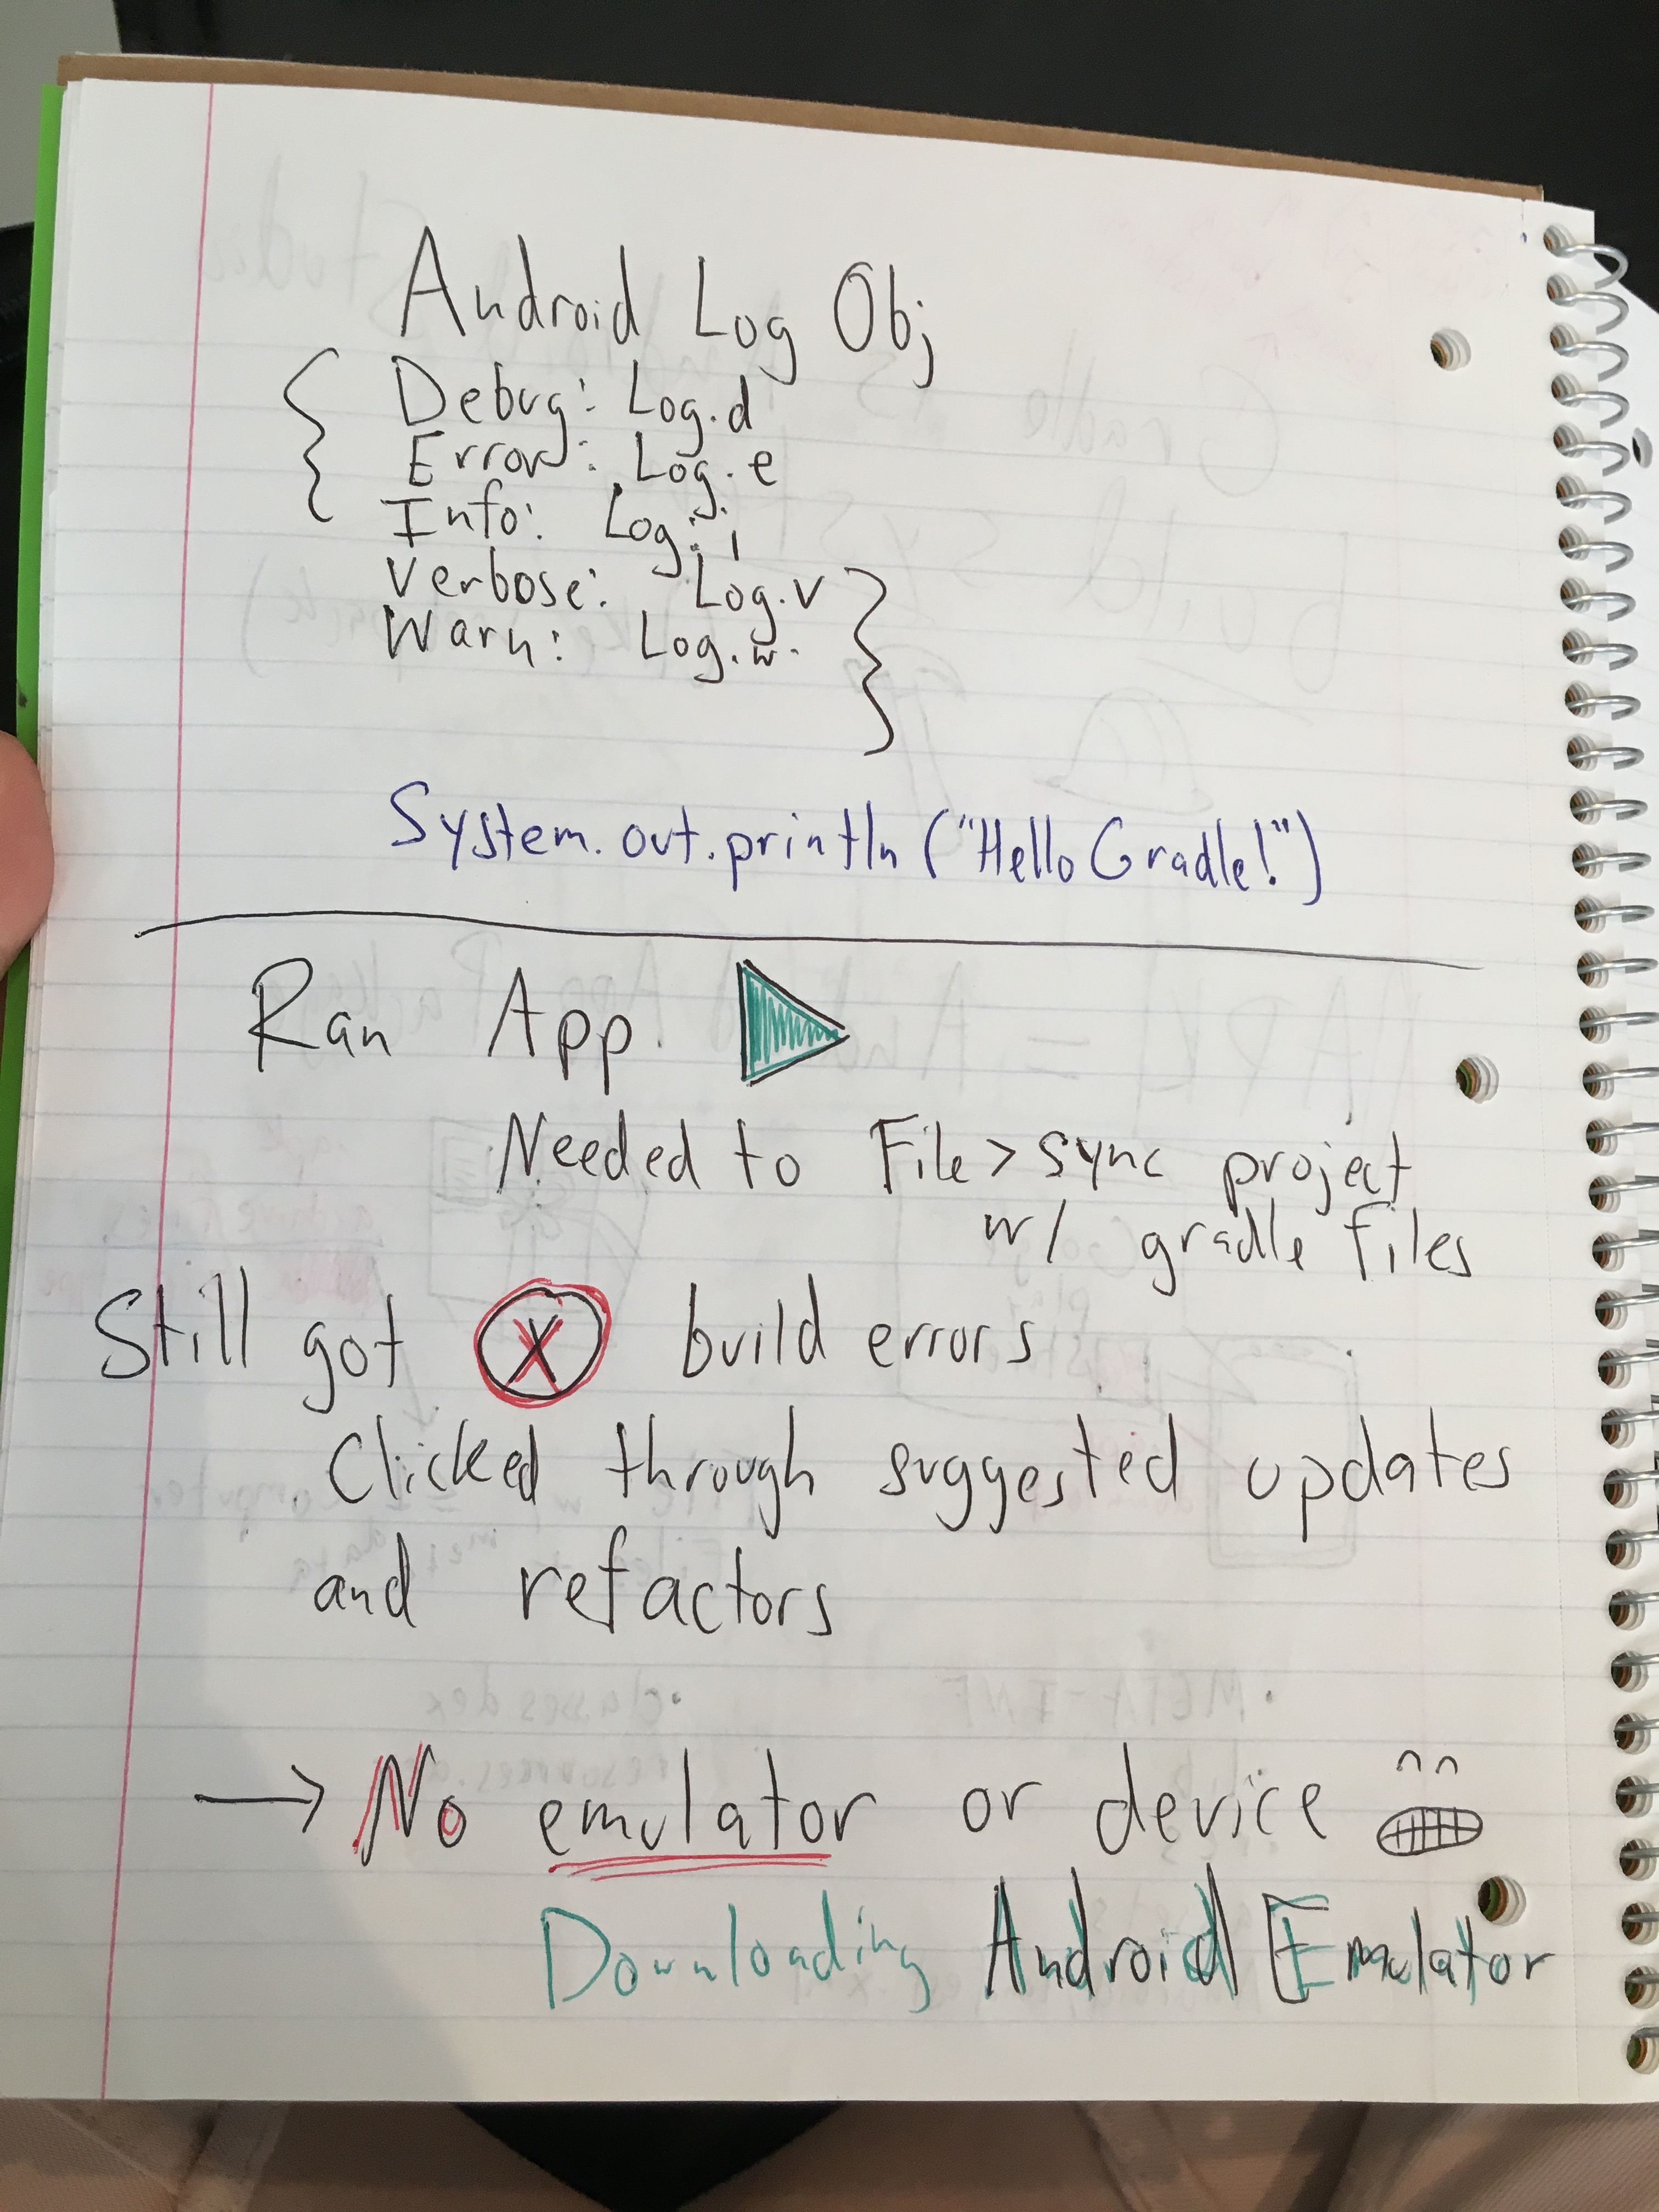 Android Log Obj
{ Debug: Log.d
Error: Log.e
Info: Log.i
Verbose: Log.v }
Warn: Log.w
System.out.println("Hello Gradle!")
Ran App
Needed to File > sync project
w/ gradle files
Still got X build errors
Clicked through suggested updates
and refactors
→ No emulator or device
Downloading Android Emulator